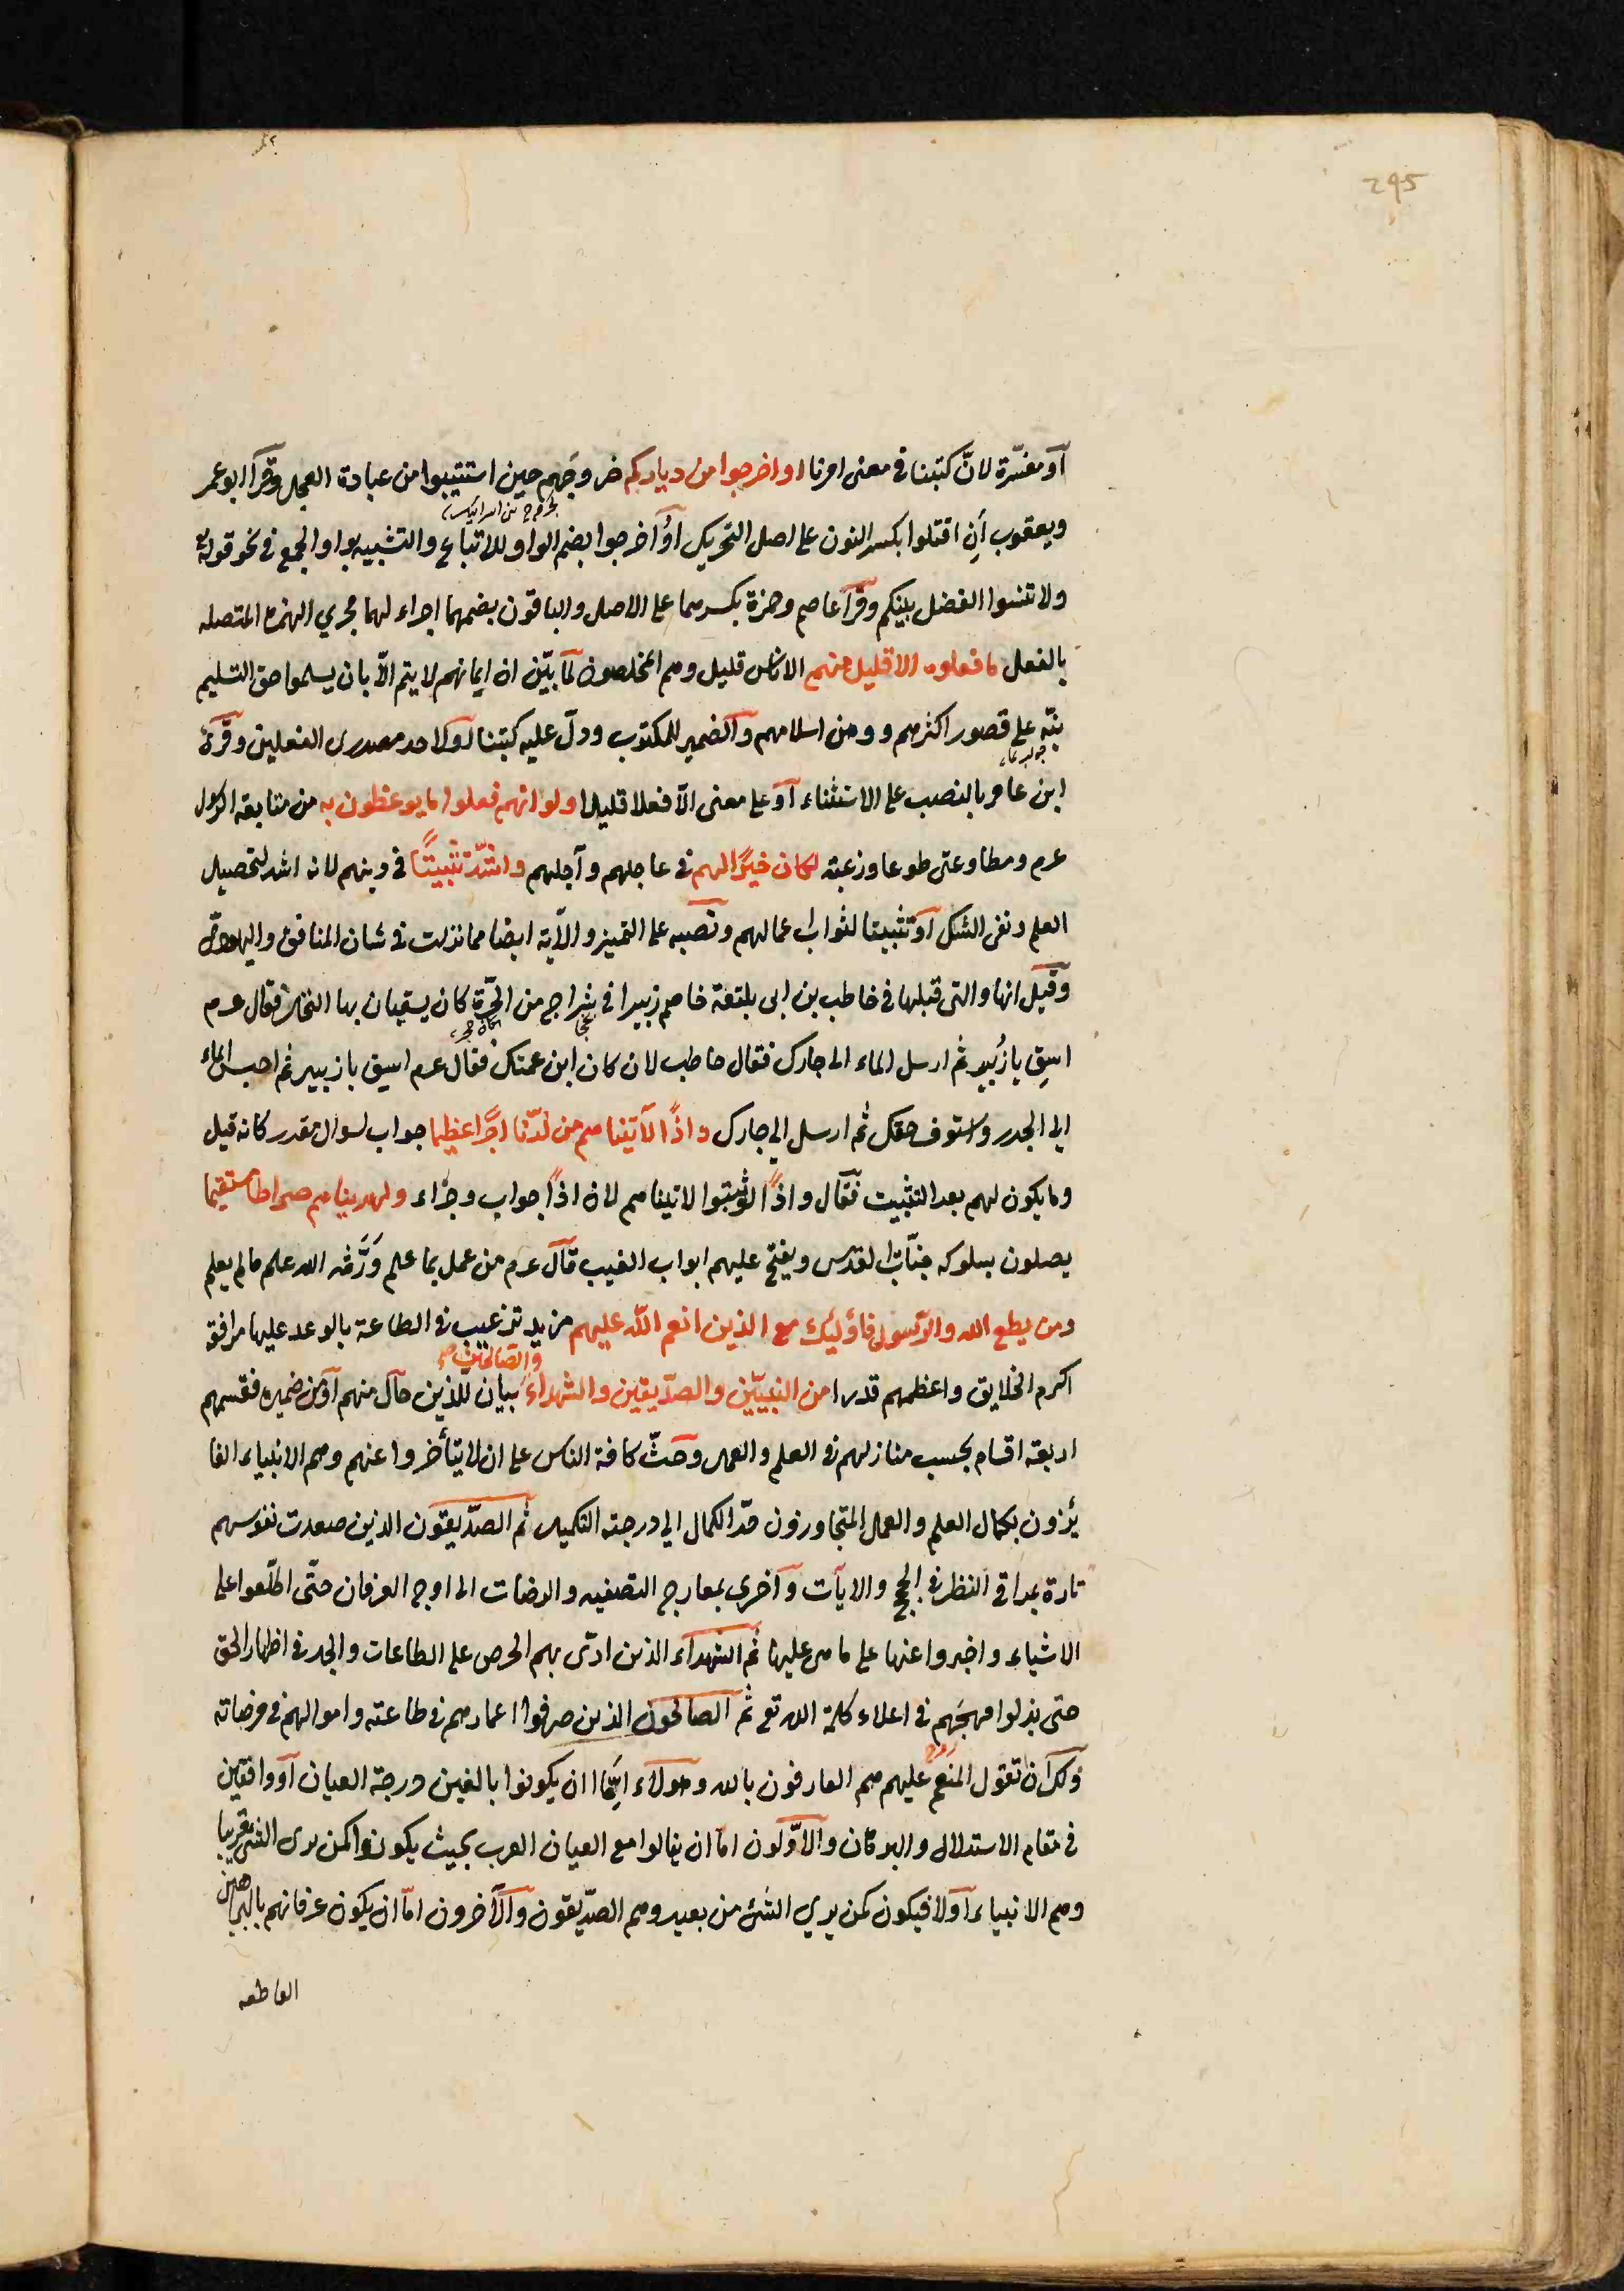 295
أو مفسّرة لانّ كتبنا فى معنى امرنا او اخرجوا من دياركم خروجَهم حين استتيبوا من عبادة العجل وقرأ ابو عمر
ويعقوب أَنِ اقتلوا بكسر النون على اصل التحريك اوُ اخرجوا بضم الواو للاتباع والتشبيه بواو الجمع فى نحو قوله
ولا تنسوا الفضل بينكم وقرأ عاصم وحمزة بكسرهما على الاصل والباقون بضمهما اجراء لهما مجري الهمزة المتصله
بالفعل ما فعلوه الا قليل منهم الا ناس قليل وهم المخلصون لمّا بيّن ان ايمانهم لا يتم الّا بان يسلموا حق التسليم
نبّه على قصور اكثرهم ووهن اسلامهم والضمير للمكتوب ودلّ عليه كتبنا او لاحد مصدرى الفعلين وقرأ
ابن عامر بالنصب على الاستثناء او على معنى الّا فعلا قليلا ولو انهم فعلوا ما يوعظون به من متابعة الرسول
عرم ومطاوعتى طوعا ورغبة لكان خيرًا لهم فى عاجلهم وآجلهم واشدّ تثبيتًا فى دينهم لانه اشد لتحصيل
العلم ونفى الشك او تثبيتا لثواب اعمالهم ونصبه على التميز والآية ايضا مما نزلت فى شان المنافق واليهودىّ
وقيل انها والتى قبلها فى خاطب بن ابى بلتعة خاصم زبيرا فى شراج من الحرّة كان يسقيان بها النخل فقال عرم
اسقِ يا زُبير ثم ارسل الماء الى جارك فقال حاطب لان كان ابن عمتك فقال عرم اسق يا زبير ثم احبس الماء
الى الجدر واستوف حقك ثم ارسل الي جارك واذًا لآتينا هم من لدّنا اجرًا عظيما جواب لسوال مقدر كانه قيل
وما يكون لهم بعد التثبيت فقال واذًا لو ثبتوا لاتينا هم لان اذًا جواب وجزاء ولهدينا هم صراطا مستقيما
يصلون بسلوكه جنّات القدس ويفتح عليهم ابواب الغيب قال عرم من عمل بما علم وَرَّثه الله علم ما لم يعلم
ومن يطع الله والرّسول فاؤليك مع الذين انعم الله عليهم مزيد ترغيب فى الطاعة بالوعد عليها مرافقة
والصّالحين صح
اكرم الخلايق واعظمهم قدرا من النبيّين والصدّيقين والشهداء بيان للذين حال منهم او من ضميره فقسمهم
اربعة اقسام بحسب منازلهم فى العلم والعمل وحثّ كافة الناس على ان لا يتأخروا عنهم وهم الانبياء الفا
يزون بكمال العلم والعمل المتجاوزون حدّ الكمال الي درجة التكميل ثم الصدّيقون الذين صعدت نفوسهم
تارة بمراقي النظر فى الحجج والايآت وآخري بمعارج التصفيه والرضات الى اوج العرفان حتّى اطلّعوا على
الاشياء واخبروا عنها على ما هى عليها ثم الشهداء الذين ادّى بهم الحرص على الطاعات والجد فى اظهار الحق
حتى بذلوا مهجَهم فى اعلاء كلمة الله تع ثم الصالحون الذين صرفوا اعمارهم فى طاعته واموالهم فى مرضاته
ولك ان تقول المنعَم عليهم هم العارفون بالله وهولاء امّا ان يكونوا بالغين درجة العيان او واقفين
فى مقام الاستدلال والبرهان والاوّلون امّا ان ينالوا مع العيان القرب بحيث يكونوا كمن يرى الشئ قريبا
وهم الانبياء او لا فيكون كمن يري الشئ من بعيد وهم الصدّيقون والآخرون امّا ان يكون عرفانهم بالبراهين
القاطعه